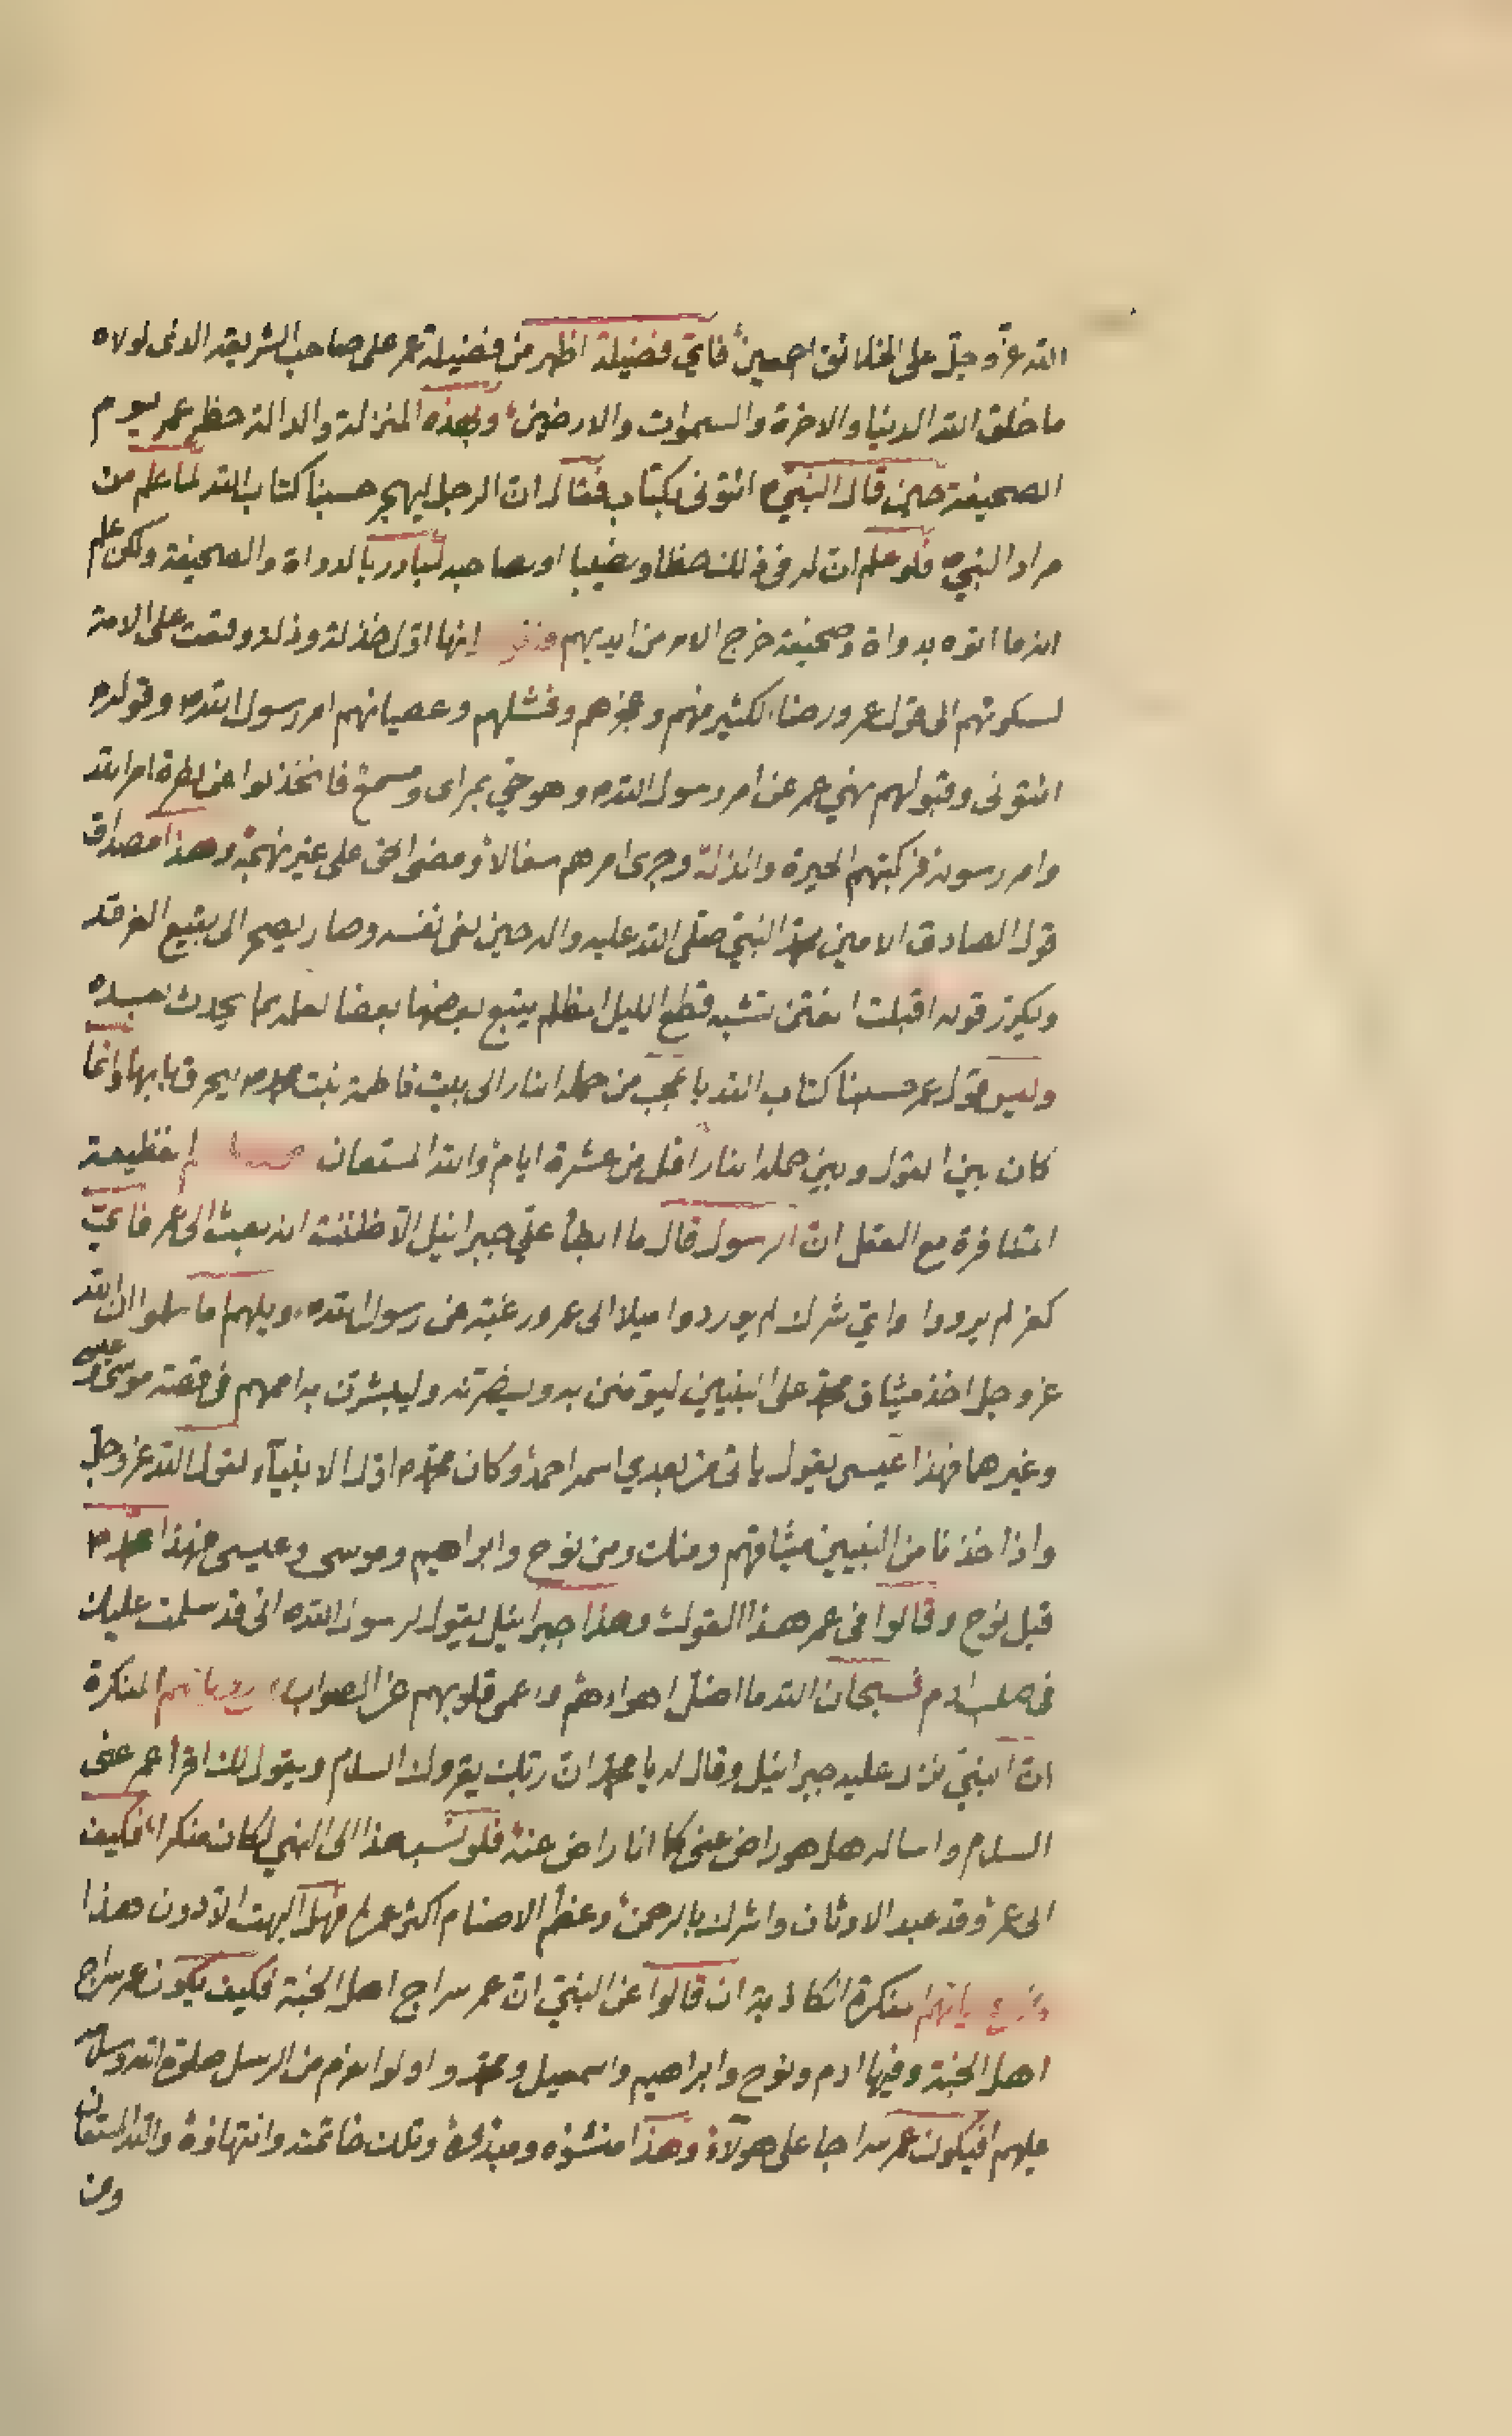 الله عز وجل على الخلائق اجمعين فاي فضيلة اظهر من فضيلة عمر على صاحب الشريعة الذي لولاه
ما خلق الله الدنيا والاخرة والسموات والارضين وبهذه المنزلة والدالة حظر عمر يوم
الصحيفة حين قال النبي ائتوني بكتاب فقال ان الرجل ليهجر حسبنا كتاب الله لما علم من
مراد النبي فلو علم ان له في ذلك حظا ونصيبا او لصاحبه لبادر بالدواة والصحيفة ولكن علم
انه ما اتوه بدواة وصحيفة خرج الامر من ايديهم انها اول خذلة وذلة وقعت على الامة
لسكوتهم الى قول عمر ورضاء الكثير منهم وعجزهم وفشلهم وعصيانهم امر رسول الله وقوله
ائتوني وقبولهم نهي عمر عن امر رسول الله وهو حي بمراى ومسمع فانخذلوا عن نصرة امر الله
وامر رسوله فركبتهم الحيرة والذلة وجرى امرهم سفالا ومضى الحق على غير نهجه وهذا مصداق
قول الصادق الامين محمد النبي صلى الله عليه واله حين نعى نفسه وصار يصحر الى بقيع الغرقد
ويكرر قوله اقبلت الفتن تشبه قطع الليل المظلم يتبع بعضها بعضا لعلمه بما يحدث بعده
وليس قول عمر حسبنا كتاب الله باعجب من حمله النار الى بيت فاطمة بنت محمد ليحرق بابها وانما
كان بين القول وبين حمله النار اقل من عشرة ايام والله المستعان العظيمة
المتنافرة مع العقل ان الرسول قال ما ابطأ علي جبرائيل الا ظننت انه بعث الى عمر فاي
كفر لم يردوا واي شرك لم يوردوا ميلا الى عمر ورغبة عن رسول الله ويلهم اما علموا ان الله
عز وجل اخذ ميثاق محمد على النبيين ليؤمنن به ولينصرنه وليبشرن به اممهم في قصة موسى وعيسى
وغيرهما فهذا عيسى يقول ياتي من بعدي اسمه احمد وكان محمد اول الانبياء لقول الله عز وجل
واذ اخذنا من النبيين ميثاقهم ومنك ومن نوح وابراهيم وموسى وعيسى فهذا محمد
قبل نوح وقالوا في عمر هذا القول وهذا جبرائيل يقول لرسول الله اني قد سلمت عليك
في صلب ادم فسبحان الله ما اضل اهواءهم واعمى قلوبهم عن الصواب المنكرة
ان النبي نزل عليه جبرائيل وقال له يا محمد ان ربك يقرؤك السلام ويقول لك اقرأ عمر عني
السلام واساله هل هو راض عني كما انا راض عنه فلو نسب هذا الى النبي لكان منكرا فكيف
الى عمر وقد عبد الاوثان واشرك بالرحمن وعظم الاصنام اكثر عمره فهل البهت الا دون هذا
المنكرة الكاذبة ان قالوا عن النبي ان عمر سراج اهل الجنة فكيف يكون عمر سراج
اهل الجنة وفيها ادم ونوح وابراهيم واسمعيل ومحمد واولوا العزم من الرسل صلوة الله وسلامه
عليهم افيكون عمر سراجا على هولاء وهذا منشؤه ومبدؤه وتلك خاتمته وانتهاؤه والله المستعان
ومن